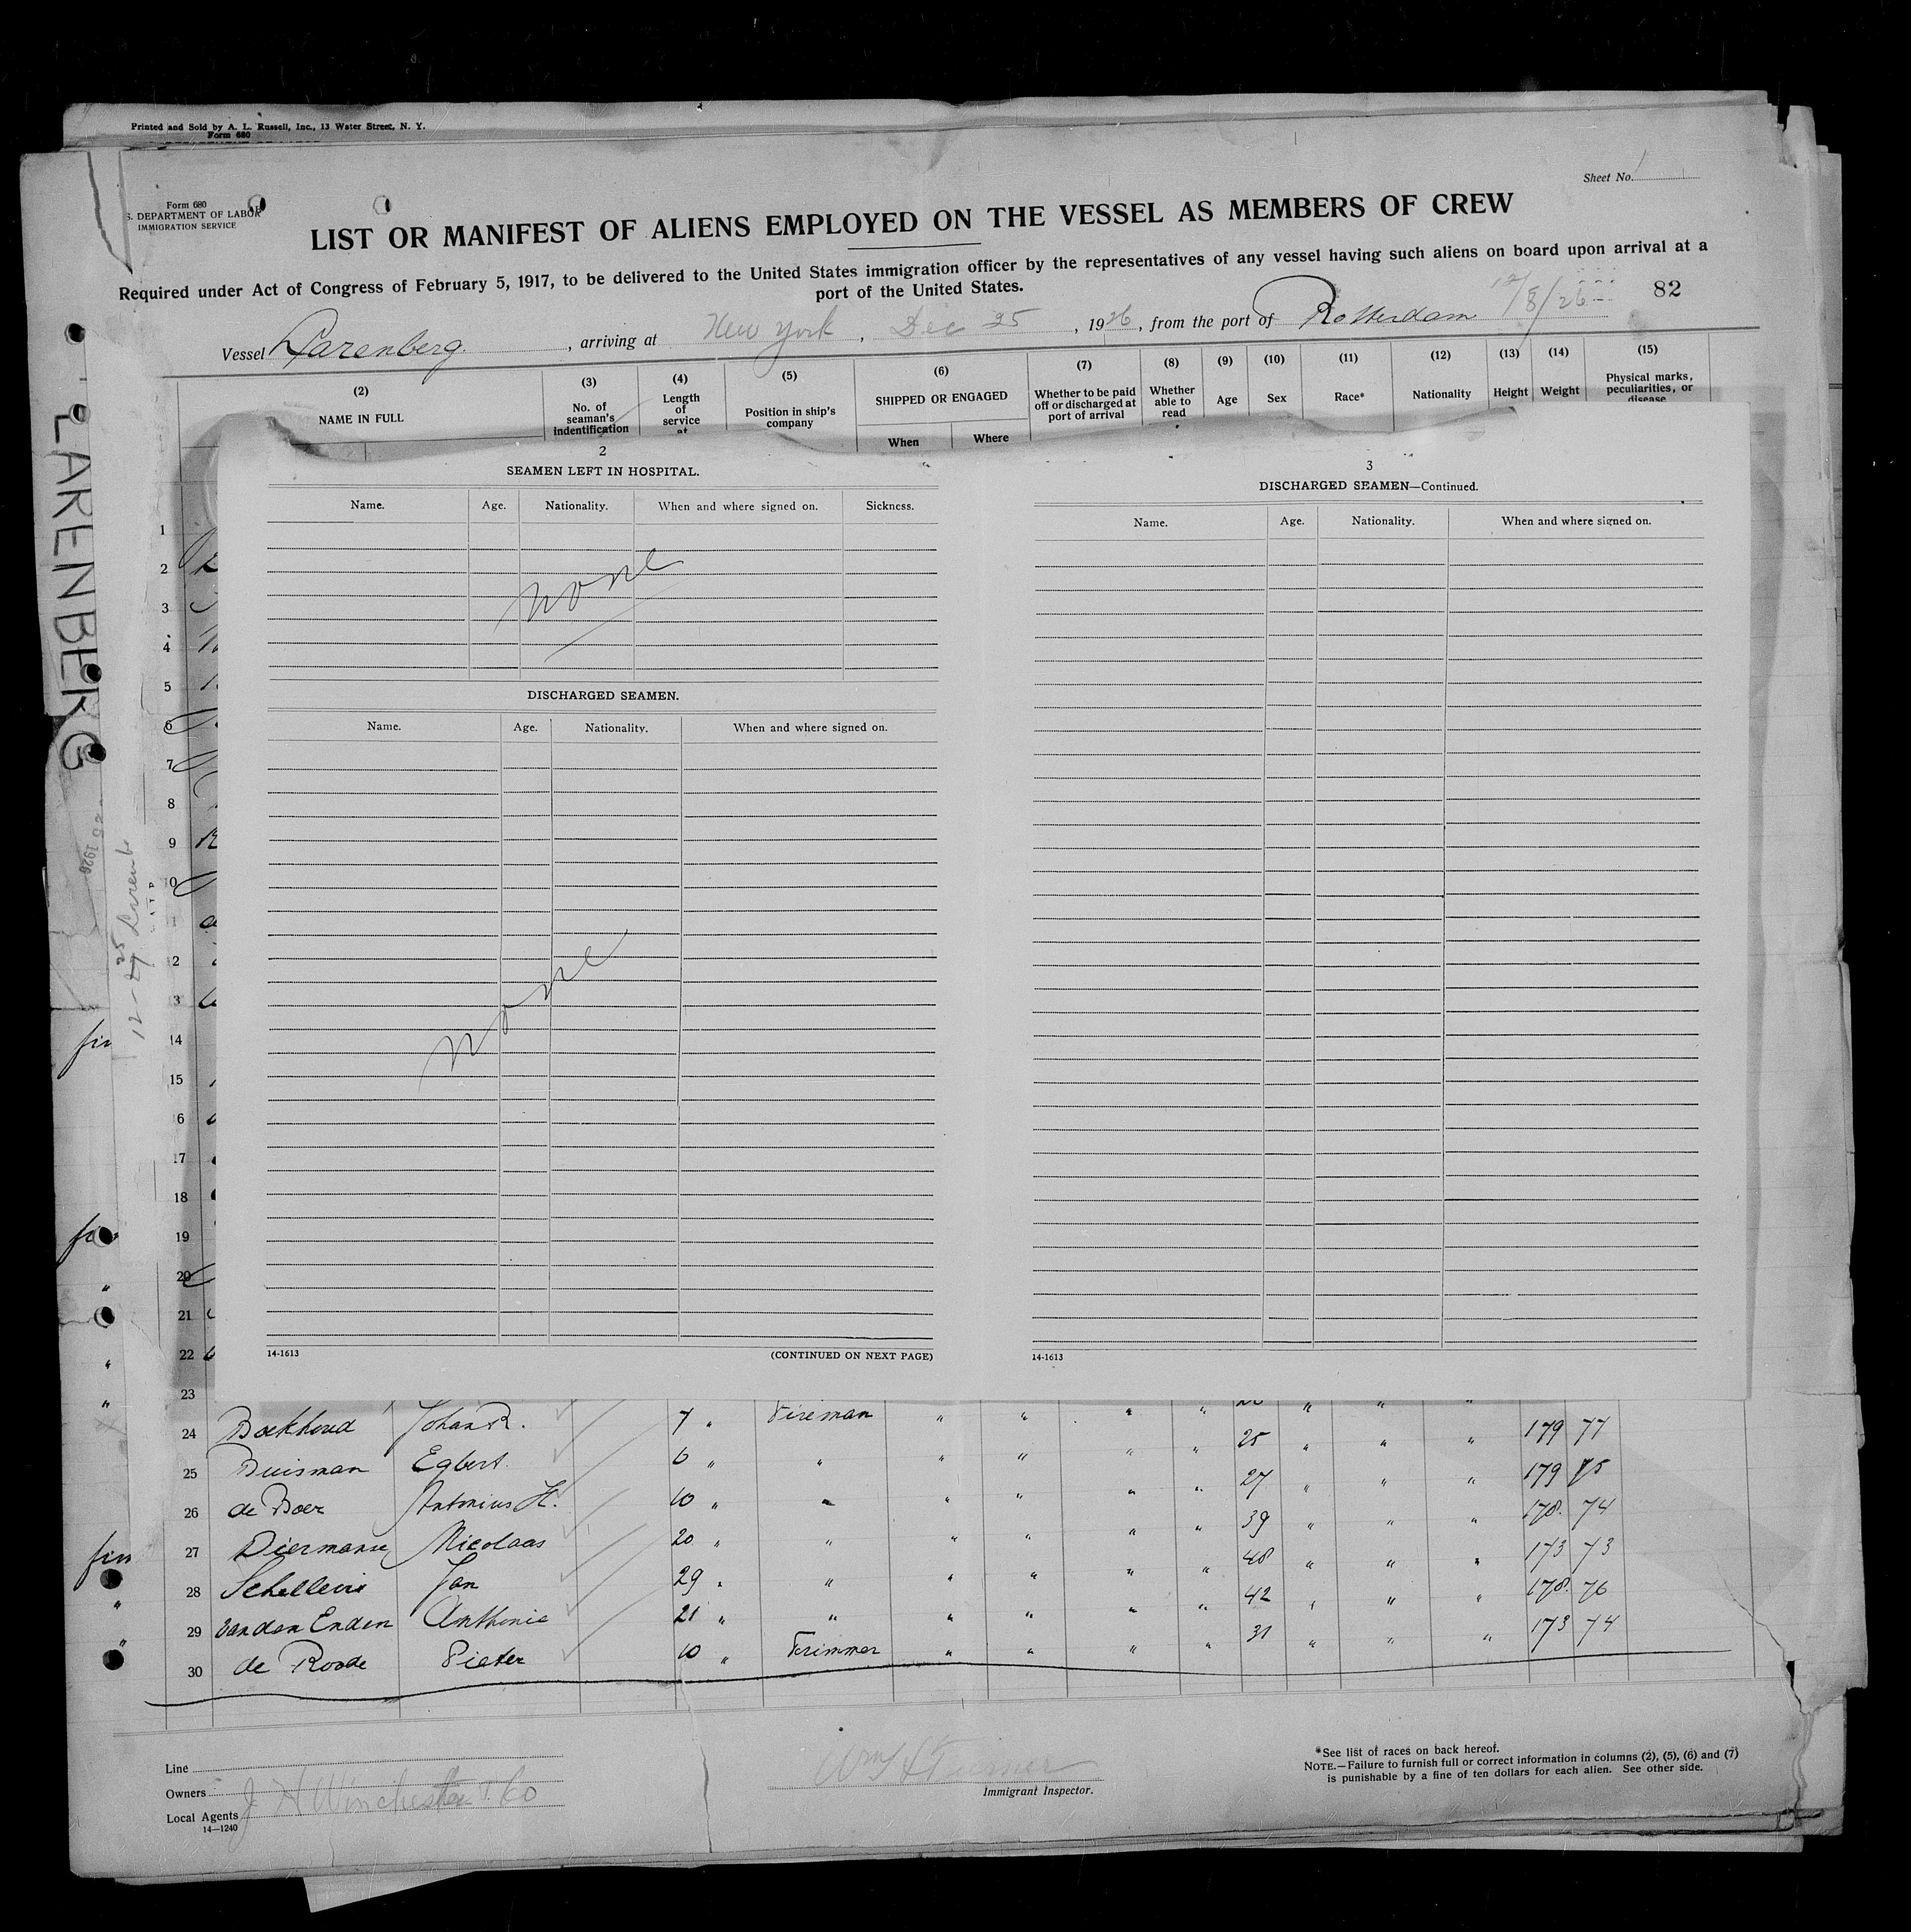 Printed and Sold by A. L. Russell, Inc., 13 Water Street, N. Y.
Form 680
Sheet No. 1
Form 680
S. DEPARTMENT OF LABOR
IMMIGRATION SERVICE
LIST OR MANIFEST OF ALIENS EMPLOYED ON THE VESSEL AS MEMBERS OF CREW
Required under Act of Congress of February 5, 1917, to be delivered to the United States immigration officer by the representatives of any vessel having such aliens on board upon arrival at a
port of the United States.
12/8/26
82
Vessel Larenberg, arriving at New York, Dec 25, 1926, from the port of Rotterdam
(2) (3) (4) (5) (6) (7) (8) (9) (10) (11) (12) (13) (14) (15)
NAME IN FULL
No. of seaman's indentification
Length of service at
Position in ship's company
SHIPPED OR ENGAGED
When Where
Whether to be paid off or discharged at port of arrival
Whether able to read
Age
Sex
Race*
Nationality
Height
Weight
Physical marks, peculiarities, or disease
LARENBERG
2
SEAMEN LEFT IN HOSPITAL.
Name. Age. Nationality. When and where signed on. Sickness.
none
DISCHARGED SEAMEN.
Name. Age. Nationality. When and where signed on.
none
14-1613 (CONTINUED ON NEXT PAGE)
3
DISCHARGED SEAMEN—Continued.
Name. Age. Nationality. When and where signed on.
14-1613
1
2
3
4
5
6
7
8
9
10
11
12
13
14
15
16
17
18
19
20
21
22
23
24 Boekhoud Johan R. 7 " Fireman " " " " 25 " " " 179 77
25 Buisman Egbert. 6 " " " " " " 27 " " " 179 75
26 de Boer Antonius H. 10 " " " " " " 39 " " " 178 74
27 Diermanse Nicolaas 20 " " " " " " 48 " " " 173 73
28 Schellevis Jan 29 " " " " " " 42 " " " 178 76
29 van den Enden Anthonie 21 " " " " " " 31 " " " 173 74
30 de Roode Pieter 10 " Trimmer " " " "
Line
Owners
Local Agents J. H Winchester & Co
14—1240
Wm H Turner
Immigrant Inspector.
*See list of races on back hereof.
NOTE.—Failure to furnish full or correct information in columns (2), (5), (6) and (7)
is punishable by a fine of ten dollars for each alien. See other side.